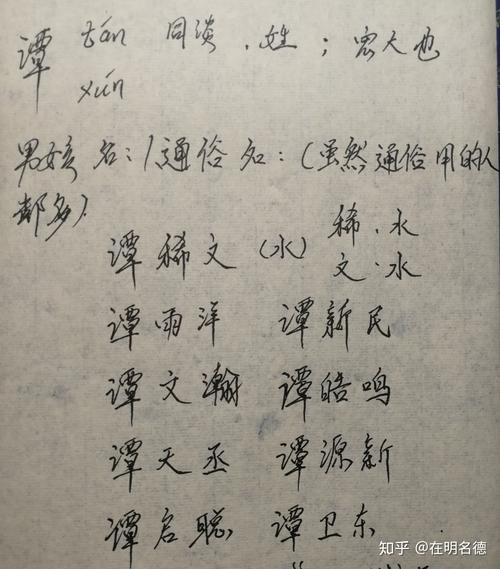 谭 tán 同谈，姓；宏大也
xún
男孩名：1通俗名：（虽然通俗用的人
都多）
谭稀文（水） 稀．水
文．水
谭雨洋 谭新民
谭文瀚 谭皓鸣
谭天丞 谭源新
谭启聪 谭卫东
知乎 @在明名德